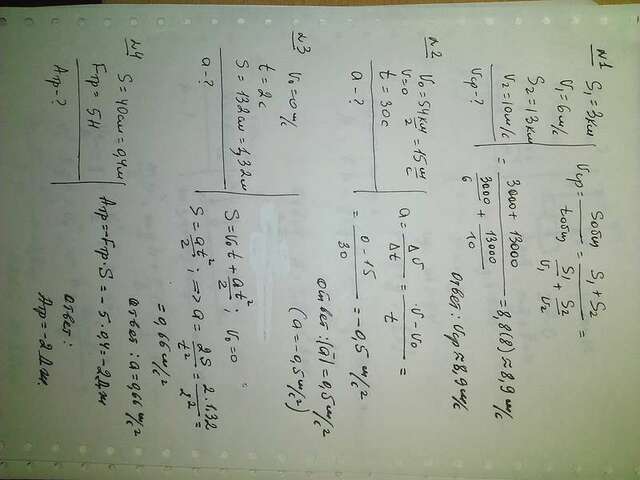 №1
S₁ = 3км
V₁ = 6 м/с
S₂ = 13км
V₂ = 10 м/с
Vср - ?
Vср = Sобщ / tобщ = (S₁ + S₂) / (S₁/V₁ + S₂/V₂) =
= (3000 + 13000) / (3000/6 + 13000/10) = 8,8(8) ≈ 8,9 м/с
Ответ: Vср ≈ 8,9 м/с
№2
V₀ = 54 км/2 = 15 м/с
V = 0
t = 30с
a - ?
a = Δv/Δt = (v - v₀)/t =
= (0 - 15)/30 = -0,5 м/с²
Ответ: |a̅| = 0,5 м/с²
(a = -0,5 м/с²)
№3
V₀ = 0 м/с
t = 2с
S = 132см = 1,32м
a - ?
S = V₀t + at²/2; V₀ = 0
S = at²/2; => a = 2S/t² = 2·1.32/2² =
= 0,66 м/с²
Ответ: a = 0,66 м/с²
№4
S = 40см = 0,4м
Fтр = 5Н
Aтр - ?
Aтр = -Fтр·S = -5·0,4 = -2Дж
Ответ:
Aтр = -2Дж.